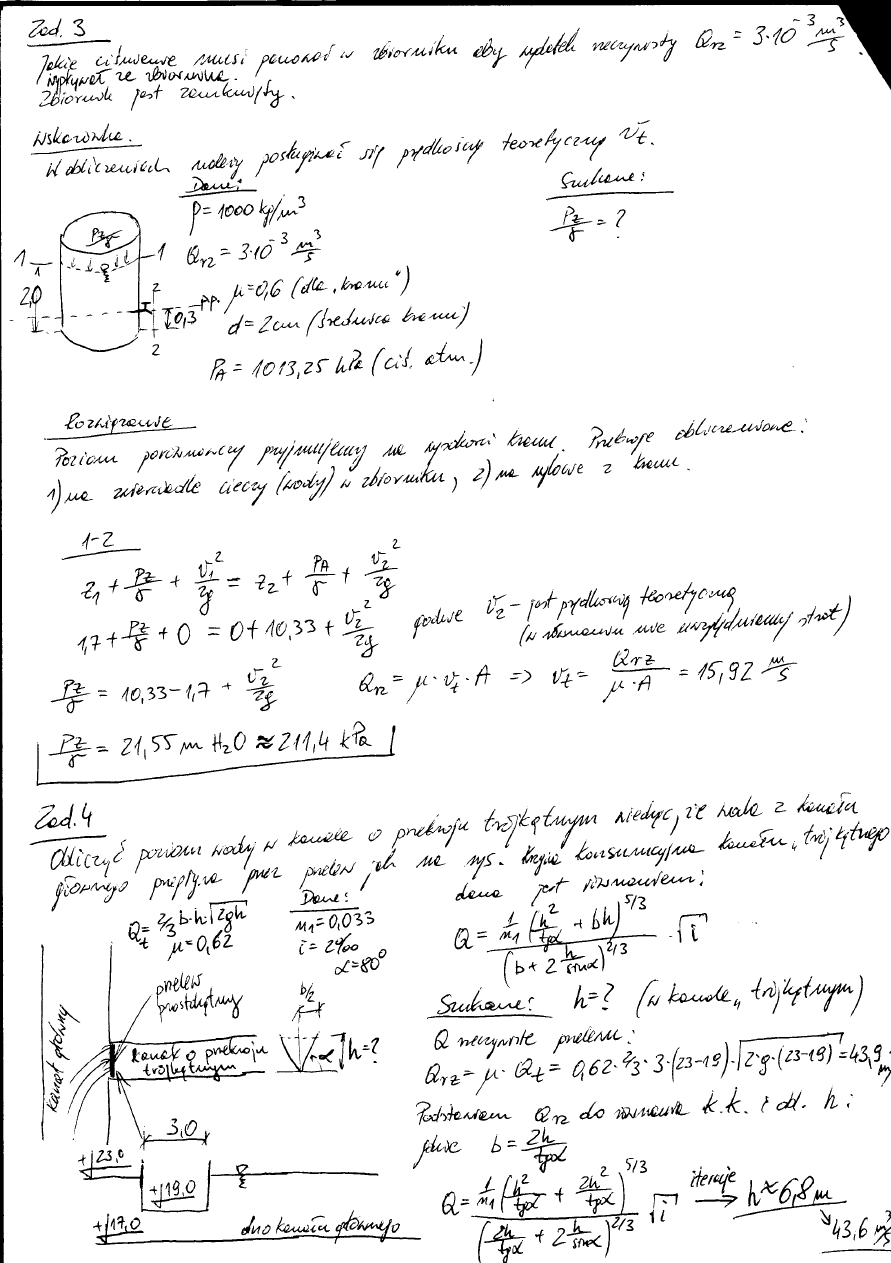 Zad. 3
Jakie ciśnienie musi panować w zbiorniku aby wydatek rzeczywisty Qrz = 3·10⁻³ m³/s
wypływał ze zbiornika.
Zbiornik jest zamknięty.
Wskazówka.
W obliczeniach należy posługiwać się prędkością teoretyczną vt.
Dane:
Szukane:
ρ = 1000 kg/m³
Pz/γ = ?
Pz/γ
1
1
Qrz = 3·10⁻³ m³/s
2,0
2
p.p.
μ = 0,6 (dla „kranu")
0,3
d = 2cm (średnica kranu)
2
PA = 1013,25 hPa (ciś. atm.)
Rozwiązanie
Poziom porównawczy przyjmujemy na wysokości kranu. Przekroje obliczeniowe:
1) na zwierciadle cieczy (wody) w zbiorniku, 2) na wylocie z kranu.
1-2
z₁ + Pz/γ + v₁²/2g = z₂ + PA/γ + v₂²/2g
1,7 + Pz/γ + 0 = 0 + 10,33 + v₂²/2g gdzie v₂ - jest prędkością teoretyczną
(w równaniu nie uwzględniamy strat)
Pz/γ = 10,33 - 1,7 + v₂²/2g Qrz = μ·vt·A => vt = Qrz/μ·A = 15,92 m/s
Pz/γ = 21,55 m H₂O ≈ 211,4 kPa
Zad. 4
Obliczyć poziom wody w kanale o przekroju trójkątnym wiedząc, że woda z kanału
głównego przepływa przez przelew jak na rys. Krzywa konsumcyjna kanału „trójkątnego
dana jest równaniem:
Qt = 2/3 b·h·√2gh
μ = 0,62
Dane:
n₁ = 0,033
i = 2‰
α = 80°
Q = 1/n₁ (h²/tgα + bh)^5/3 / (b + 2 h/sinα)^2/3 · √i
przelew
prostokątny
b/2
Szukane: h = ? (w kanale „trójkątnym)
kanał główny
kanał o przekroju
trójkątnym
α
h = ?
Q rzeczywiste przelewu:
Qrz = μ·Qt = 0,62·2/3·3·(23-19)·√2·g·(23-19) = 43,9
m
Podstawiam Qrz do równania k.k. i obl. h:
gdzie b = 2h/tgα
3,0
+23,0
+19,0
+17,0
dno kanału głównego
Q = 1/n₁ (h²/tgα + 2h²/tgα)^5/3 / (2h/tgα + 2 h/sinα)^2/3 √i iteracje → h ≈ 6,8 m
43,6 m³/s